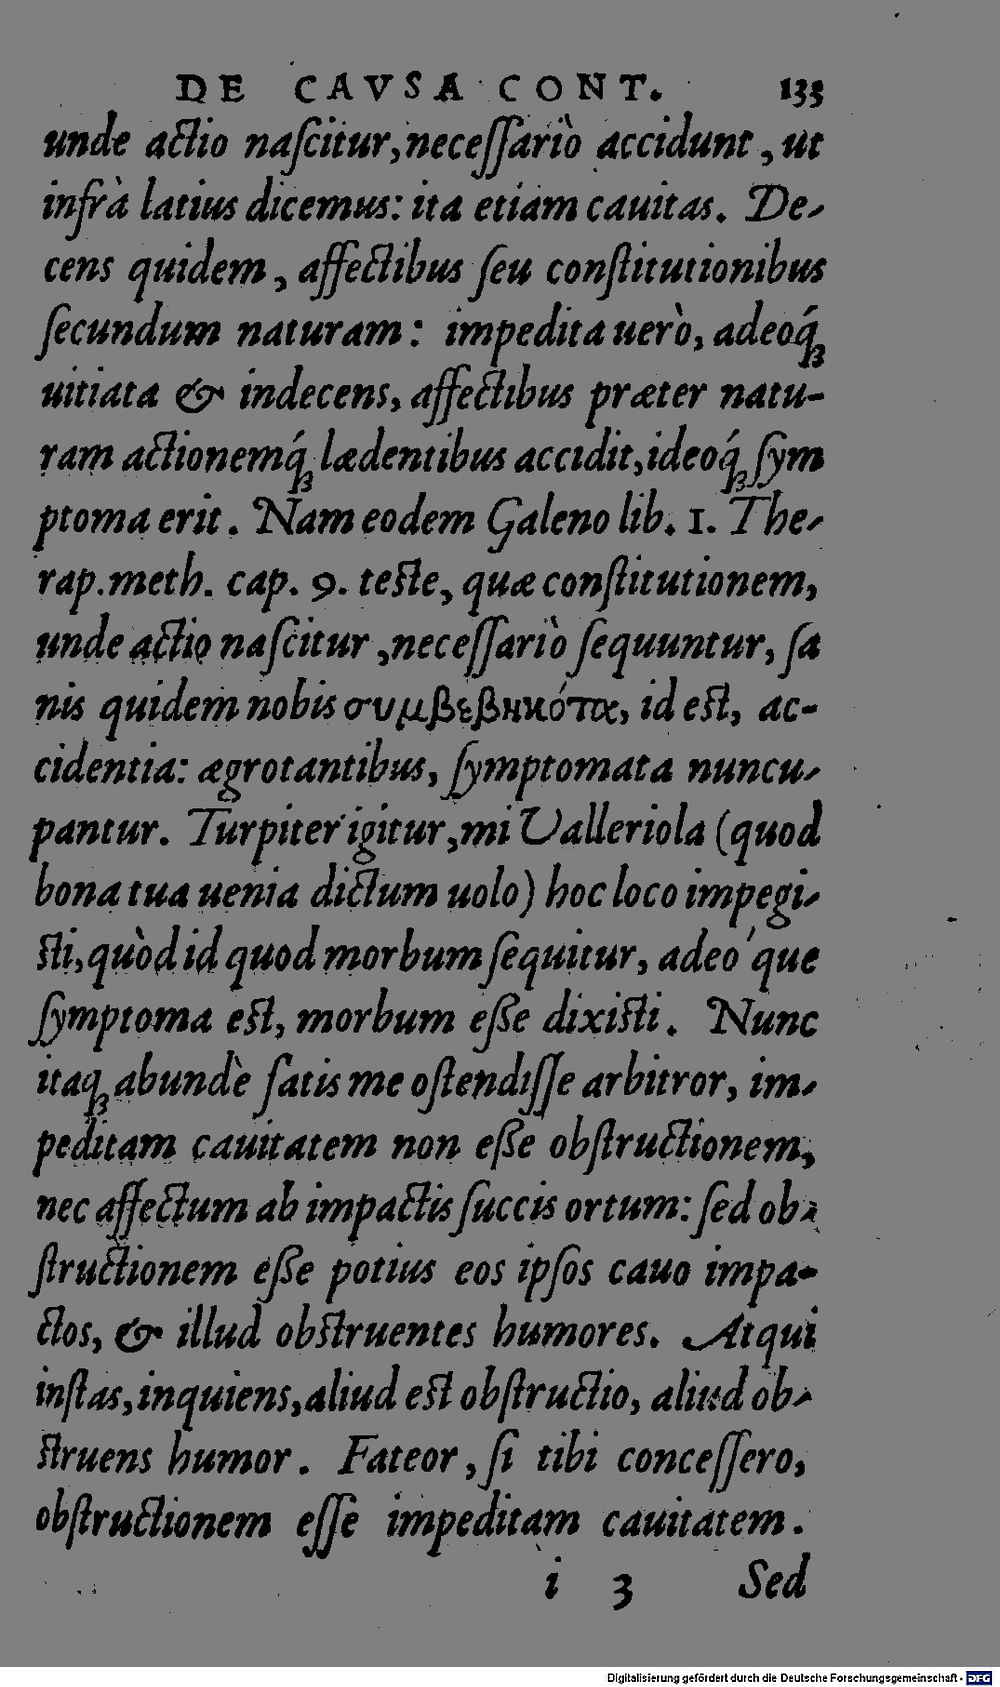 DE CAVSA CONT. 133
unde actio naſcitur, neceſſariò accidunt, ut
infrà latius dicemus: ita etiam cauitas. De-
cens quidem, affectibus ſeu conſtitutionibus
ſecundum naturam: impedita uerò, adeoq́ꝫ
uitiata & indecens, affectibus præter natu-
ram actionemq́ꝫ lædentibus accidit, ideoq́ꝫ ſym
ptoma erit. Nam eodem Galeno lib. 1. The-
rap. meth. cap. 9. teſte, quæ conſtitutionem,
unde actio naſcitur, neceſſariò ſequuntur, ſa
nis quidem nobis συμβεβηκότα, id eſt, ac-
cidentia: ægrotantibus, ſymptomata nuncu-
pantur. Turpiter igitur, mi Valleriola (quod
bona tua uenia dictum uolo) hoc loco impegi-
ſti, quòd id quod morbum ſequitur, adeo´que
ſymptoma eſt, morbum eſſe dixiſti. Nunc
itaqꝫ abundè ſatis me oſtendiſſe arbitror, im-
peditam cauitatem non eſſe obſtructionem,
nec affectum ab impactis ſuccis ortum: ſed ob-
ſtructionem eſſe potius eos ipſos cauo impa-
ctos, & illud obſtruentes humores. Atqui
inſtas, inquiens, aliud eſt obſtructio, aliud ob-
ſtruens humor. Fateor, ſi tibi conceſſero,
obſtructionem eſſe impeditam cauitatem.
i 3 Sed
Digitalisierung gefördert durch die Deutsche Forschungsgemeinschaft - DFG